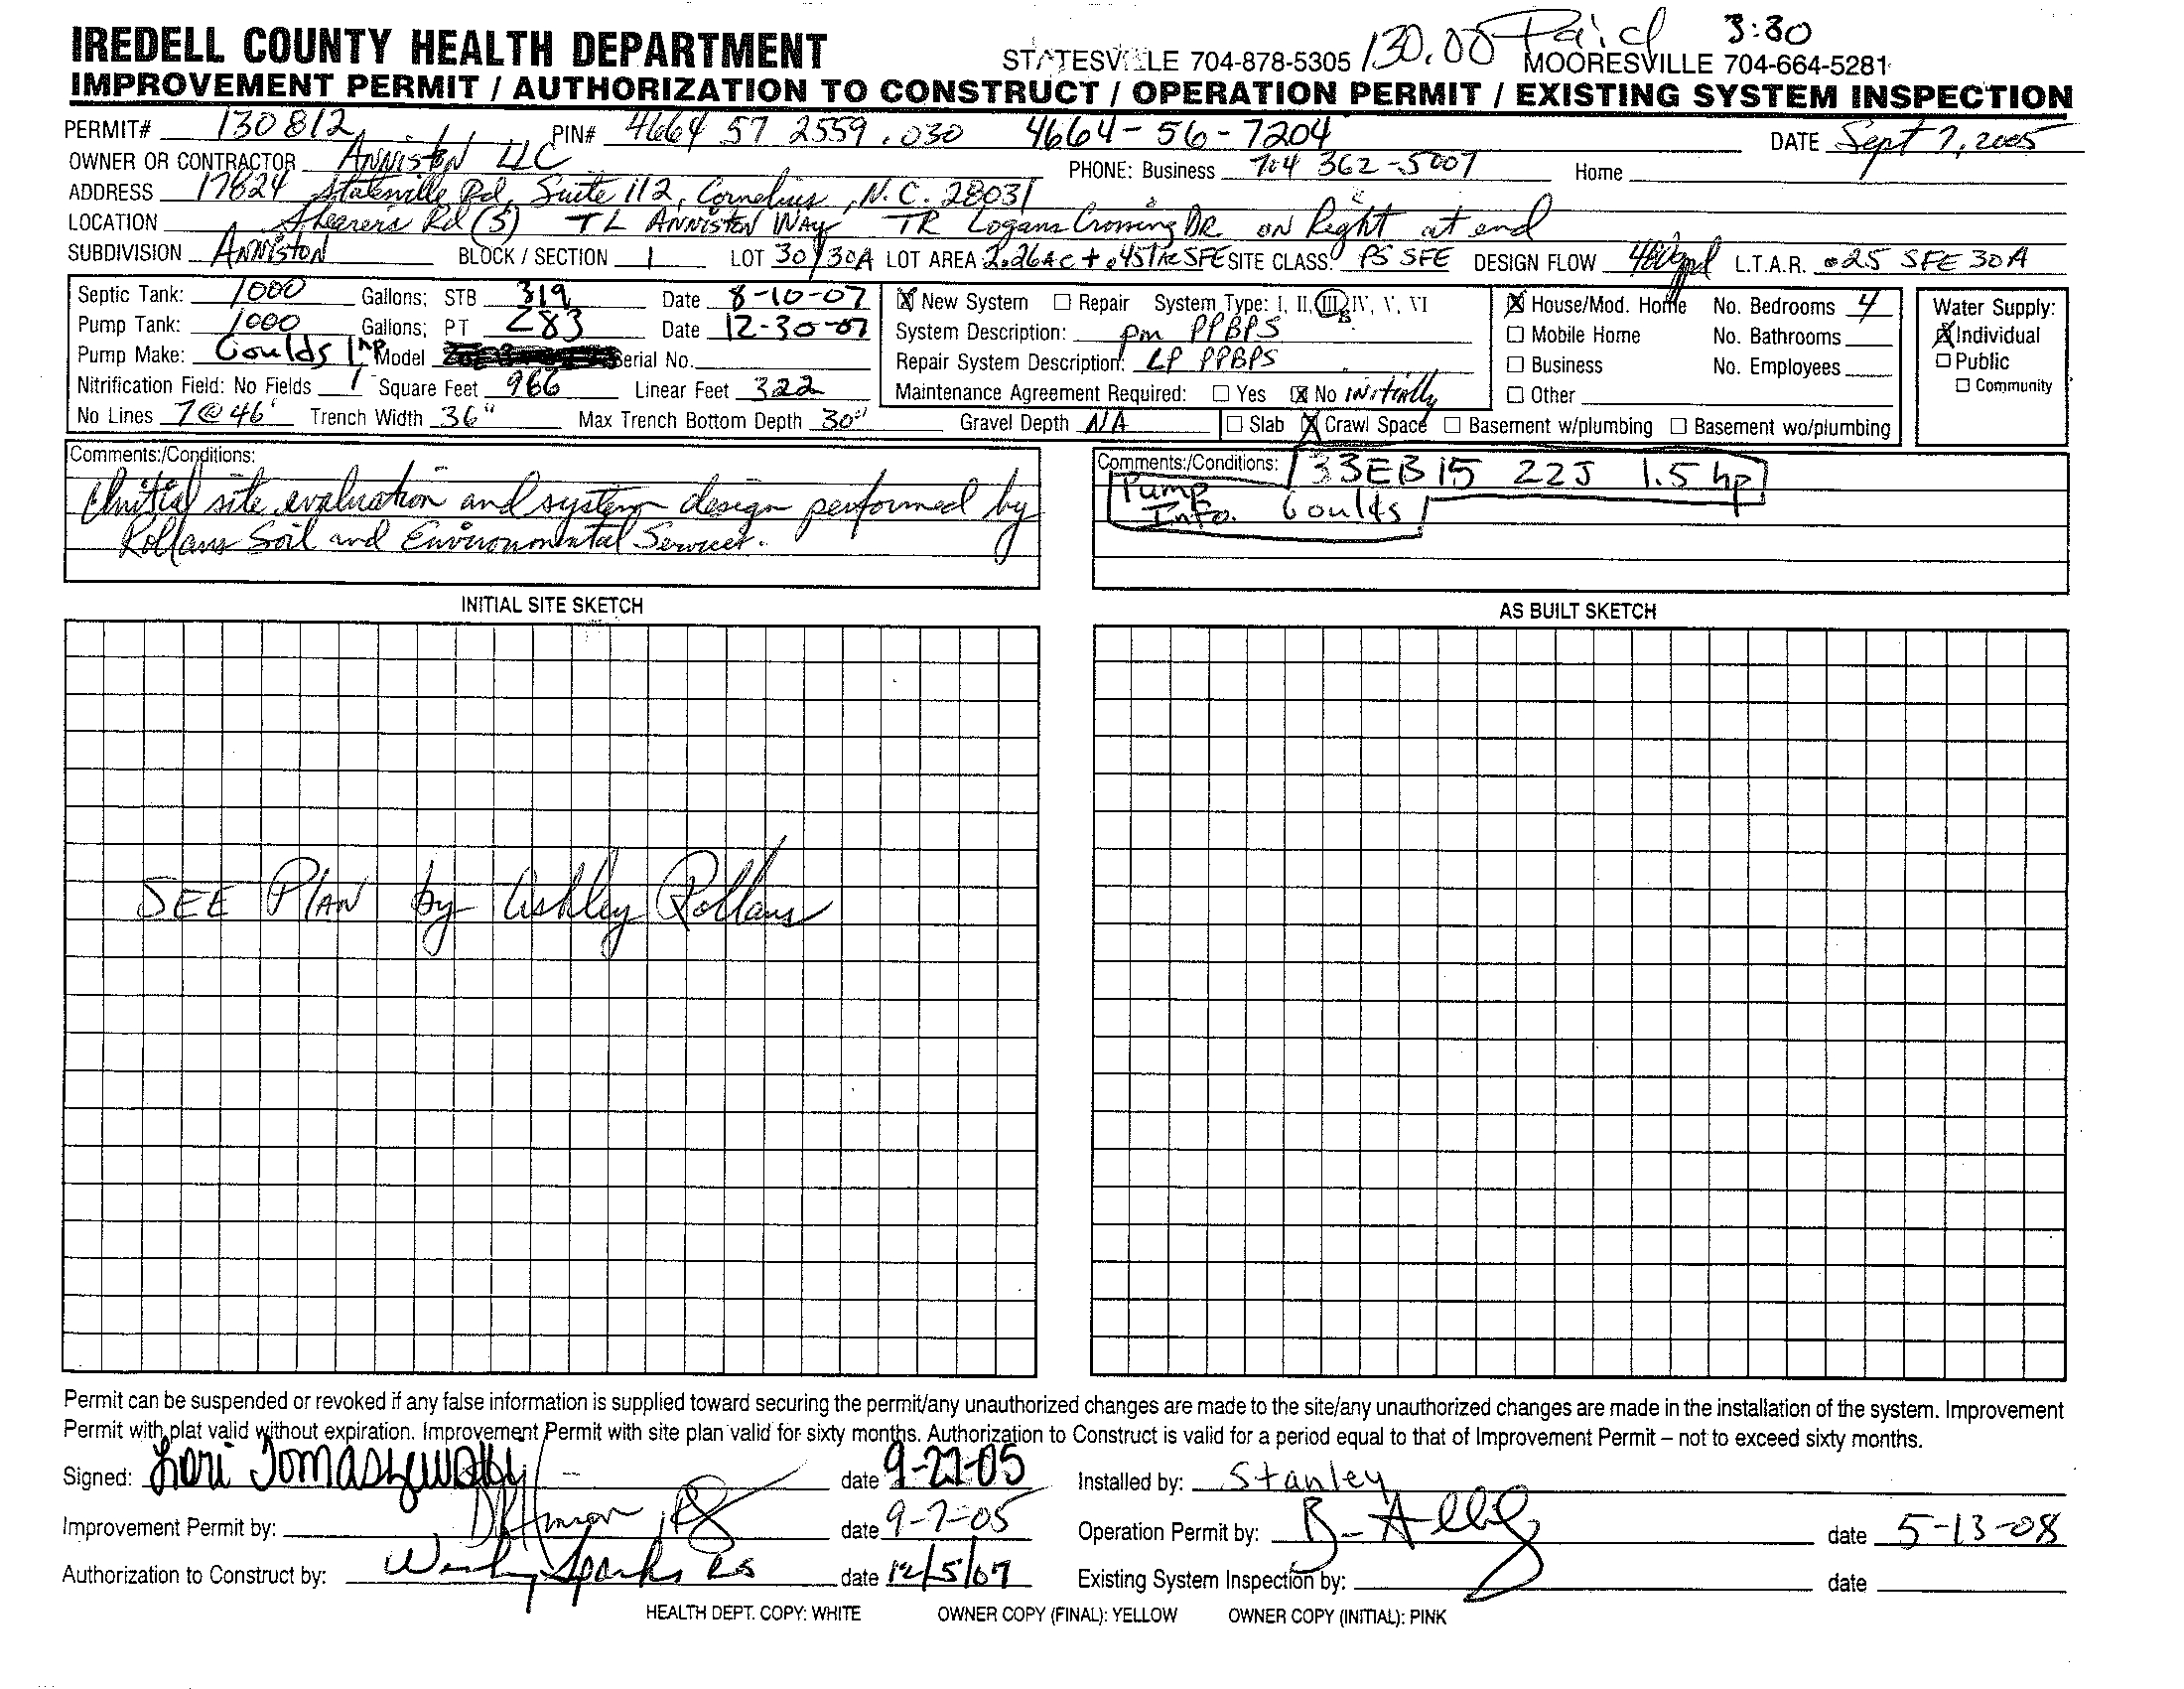 130.00 Paid 3:30
IREDELL COUNTY HEALTH DEPARTMENT STATESVILLE 704-878-5305 MOORESVILLE 704-664-5281
IMPROVEMENT PERMIT / AUTHORIZATION TO CONSTRUCT / OPERATION PERMIT / EXISTING SYSTEM INSPECTION
PERMIT# 130812 PIN# 4664 57 2559.030 4664-56-7204 DATE Sept 7, 2005
OWNER OR CONTRACTOR Anniston LLC PHONE: Business 704 362-5007 Home
ADDRESS 17824 Statesville Rd, Suite 112, Cornelius, N.C. 28031
LOCATION Shearers Rd (S) TL Anniston Way TR Logans Crossing DR on Right at end
SUBDIVISION Anniston BLOCK / SECTION 1 LOT 30/30A LOT AREA 2.26ac + .451ac SFE SITE CLASS: PS SFE DESIGN FLOW 480gpd L.T.A.R. .25 SFE 30A
Septic Tank: 1000 Gallons; STB 319 Date 8-10-07
Pump Tank: 1000 Gallons; PT 283 Date 12-30-07
Pump Make: Goulds 1hp Model Serial No.
Nitrification Field: No Fields 1 Square Feet 966 Linear Feet 322
No Lines 7@46' Trench Width 36" Max Trench Bottom Depth 30" Gravel Depth N/A
New System Repair System Type: I, II, III, IV, V, VI
B
System Description: Pm PPBPS
Repair System Description: LP PPBPS
Maintenance Agreement Required: Yes No initially
Slab Crawl Space Basement w/plumbing Basement wo/plumbing
House/Mod. Home No. Bedrooms 4
Mobile Home No. Bathrooms
Business No. Employees
Other
Water Supply:
Individual
Public
Community
Comments:/Conditions:
Initial site evaluation and system design performed by
Rollans Soil and Environmental Services.
Comments:/Conditions: 33EB15 22J 1.5 hp
Pump Info. Goulds
INITIAL SITE SKETCH
SEE Plan by Ashley Rollans
AS BUILT SKETCH
Permit can be suspended or revoked if any false information is supplied toward securing the permit/any unauthorized changes are made to the site/any unauthorized changes are made in the installation of the system. Improvement
Permit with plat valid without expiration. Improvement Permit with site plan valid for sixty months. Authorization to Construct is valid for a period equal to that of Improvement Permit – not to exceed sixty months.
Signed: Lori Tomaszewski date 9-27-05 Installed by: Stanley
Improvement Permit by: date 9-7-05 Operation Permit by: date 5-13-08
Authorization to Construct by: Sparks RS date 12/5/07 Existing System Inspection by: date
HEALTH DEPT. COPY: WHITE OWNER COPY (FINAL): YELLOW OWNER COPY (INITIAL): PINK